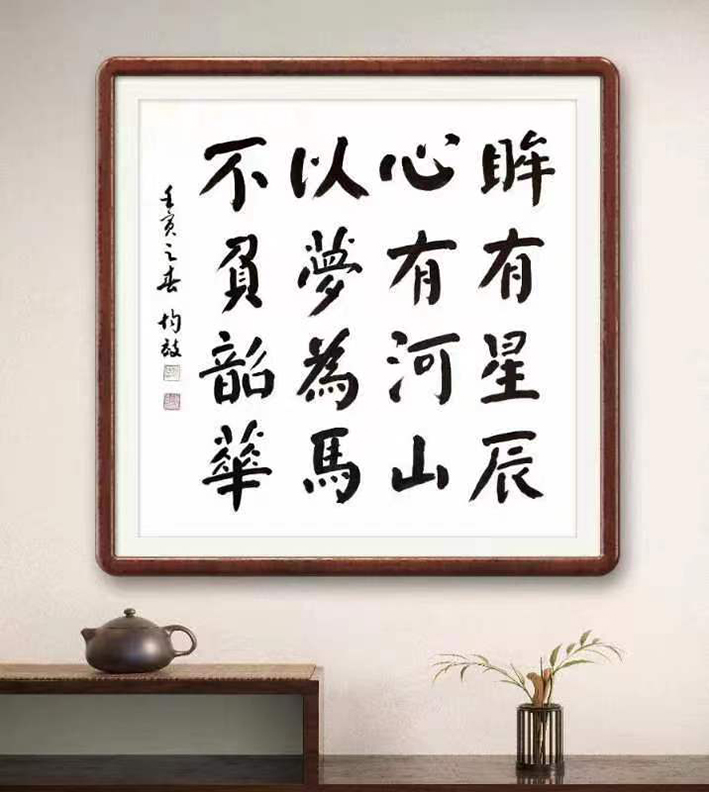 眸有星辰
心有河山
以夢為馬
不負韶華
壬寅之春 均啟